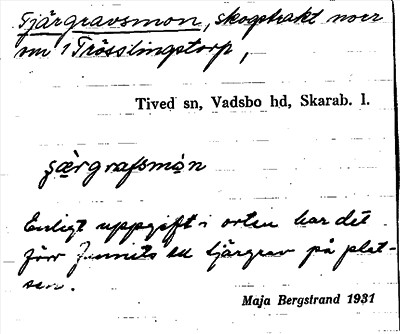 Tjärgravsmon, skogstrakt norr
om 1 Trösslingstorp,
Tived sn, Vadsbo hd, Skarab. l.
şæ̀rgrafsmo̱n
Enligt uppgift i orten har det
förr funnits en tjärgrav på plat-
sen.
Maja Bergstrand 1931